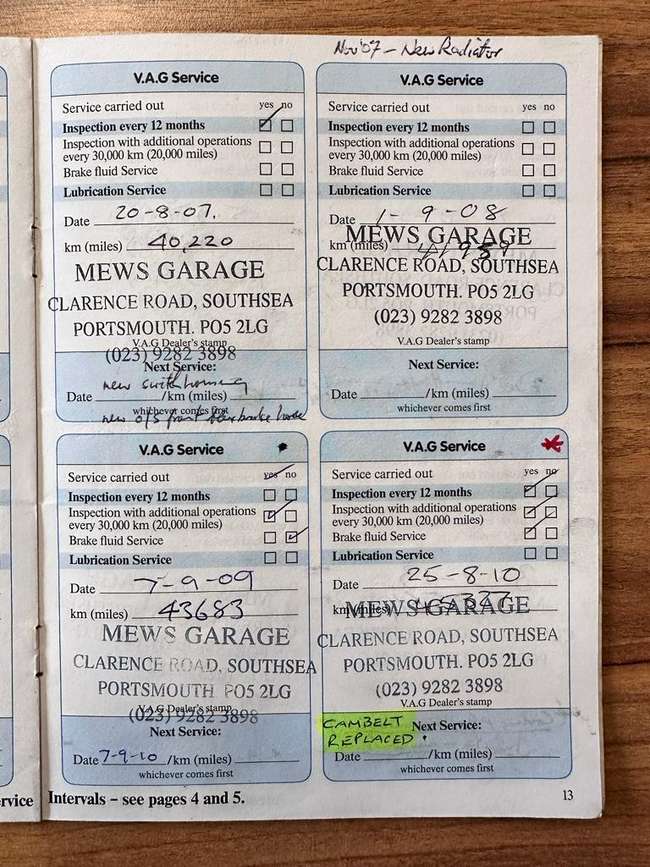 Nov '07 – New Radiator
V.A.G Service
Service carried out yes no
Inspection every 12 months
Inspection with additional operations
every 30,000 km (20,000 miles)
Brake fluid Service
Lubrication Service
Date 20-8-07.
km (miles) 40,220
MEWS GARAGE
CLARENCE ROAD, SOUTHSEA
PORTSMOUTH. PO5 2LG
V.A.G Dealer's stamp
(023) 9282 3898
Next Service:
new housing
Date /km (miles)
whichever comes first
new o/s front brake
V.A.G Service
Service carried out yes no
Inspection every 12 months
Inspection with additional operations
every 30,000 km (20,000 miles)
Brake fluid Service
Lubrication Service
Date 1-9-08
km (miles) 41959
MEWS GARAGE
CLARENCE ROAD, SOUTHSEA
PORTSMOUTH. PO5 2LG
(023) 9282 3898
V.A.G Dealer's stamp
Next Service:
Date /km (miles)
whichever comes first
V.A.G Service
Service carried out yes no
Inspection every 12 months
Inspection with additional operations
every 30,000 km (20,000 miles)
Brake fluid Service
Lubrication Service
Date 7-9-09
km (miles) 43683
MEWS GARAGE
CLARENCE ROAD, SOUTHSEA
PORTSMOUTH PO5 2LG
V.A.G Dealer's stamp
(023) 9282 3898
Next Service:
Date 7-9-10 /km (miles)
whichever comes first
V.A.G Service
Service carried out yes no
Inspection every 12 months
Inspection with additional operations
every 30,000 km (20,000 miles)
Brake fluid Service
Lubrication Service
Date 25-8-10
km (miles)
MEWS GARAGE
CLARENCE ROAD, SOUTHSEA
PORTSMOUTH. PO5 2LG
(023) 9282 3898
V.A.G Dealer's stamp
CAMBELT
REPLACED.
Next Service:
Date /km (miles)
whichever comes first
rvice Intervals – see pages 4 and 5.
13